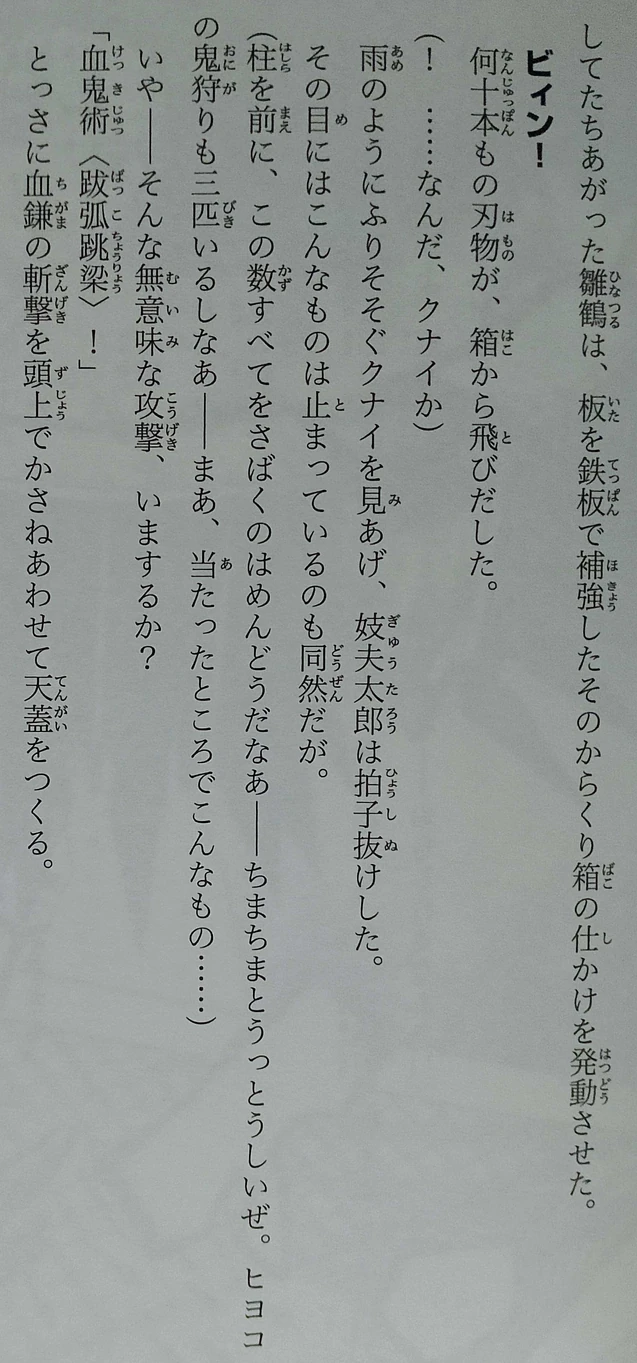 してたちあがった雛鶴は、板を鉄板で補強したそのからくり箱の仕かけを発動させた。
ビィン！
何十本もの刃物が、箱から飛びだした。
（！　……なんだ、クナイか）
雨のようにふりそそぐクナイを見あげ、妓夫太郎は拍子抜けした。
その目にはこんなものは止まっているのも同然だが。
（柱を前に、この数すべてをさばくのはめんどうだなあ――ちまちまとうっとうしいぜ。ヒヨコ
の鬼狩りも三匹いるしなあ――まあ、当たったところでこんなもの……）
いや――そんな無意味な攻撃、いまするか？
「血鬼術〈跋弧跳梁〉！」
とっさに血鎌の斬撃を頭上でかさねあわせて天蓋をつくる。